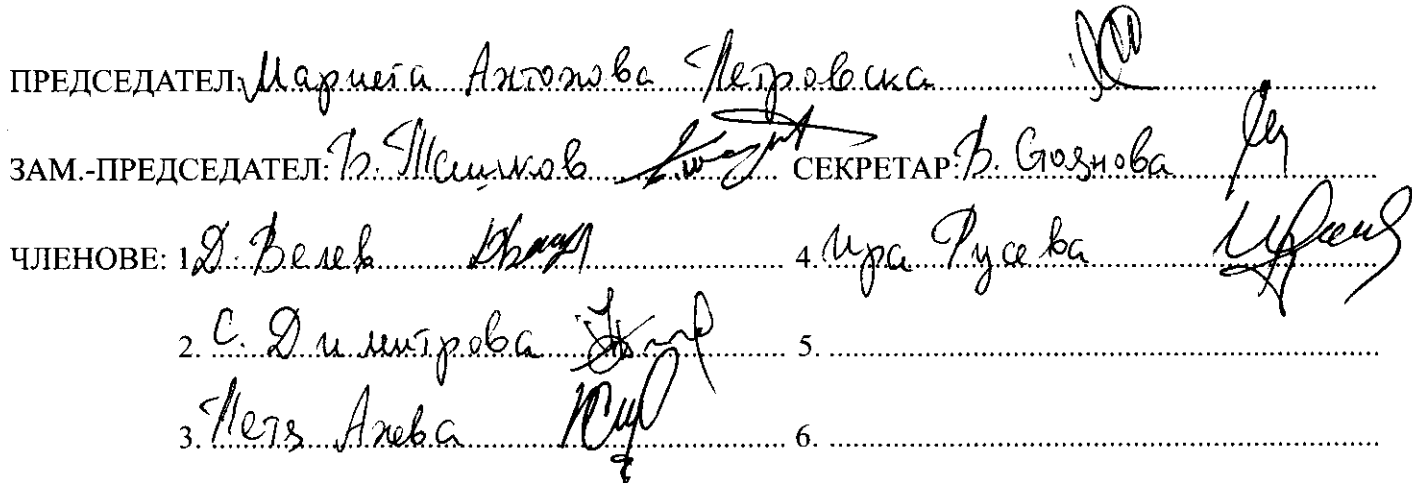 ПРЕДСЕДАТЕЛ: Мариета Антонова Петровска
ЗАМ.-ПРЕДСЕДАТЕЛ: В. СЕКРЕТАР: В. Стоянова
ЧЛЕНОВЕ: 1. Д. Велев 4. Ира Русева
2. С. Димитрова 5.
3. Петя Анева 6.